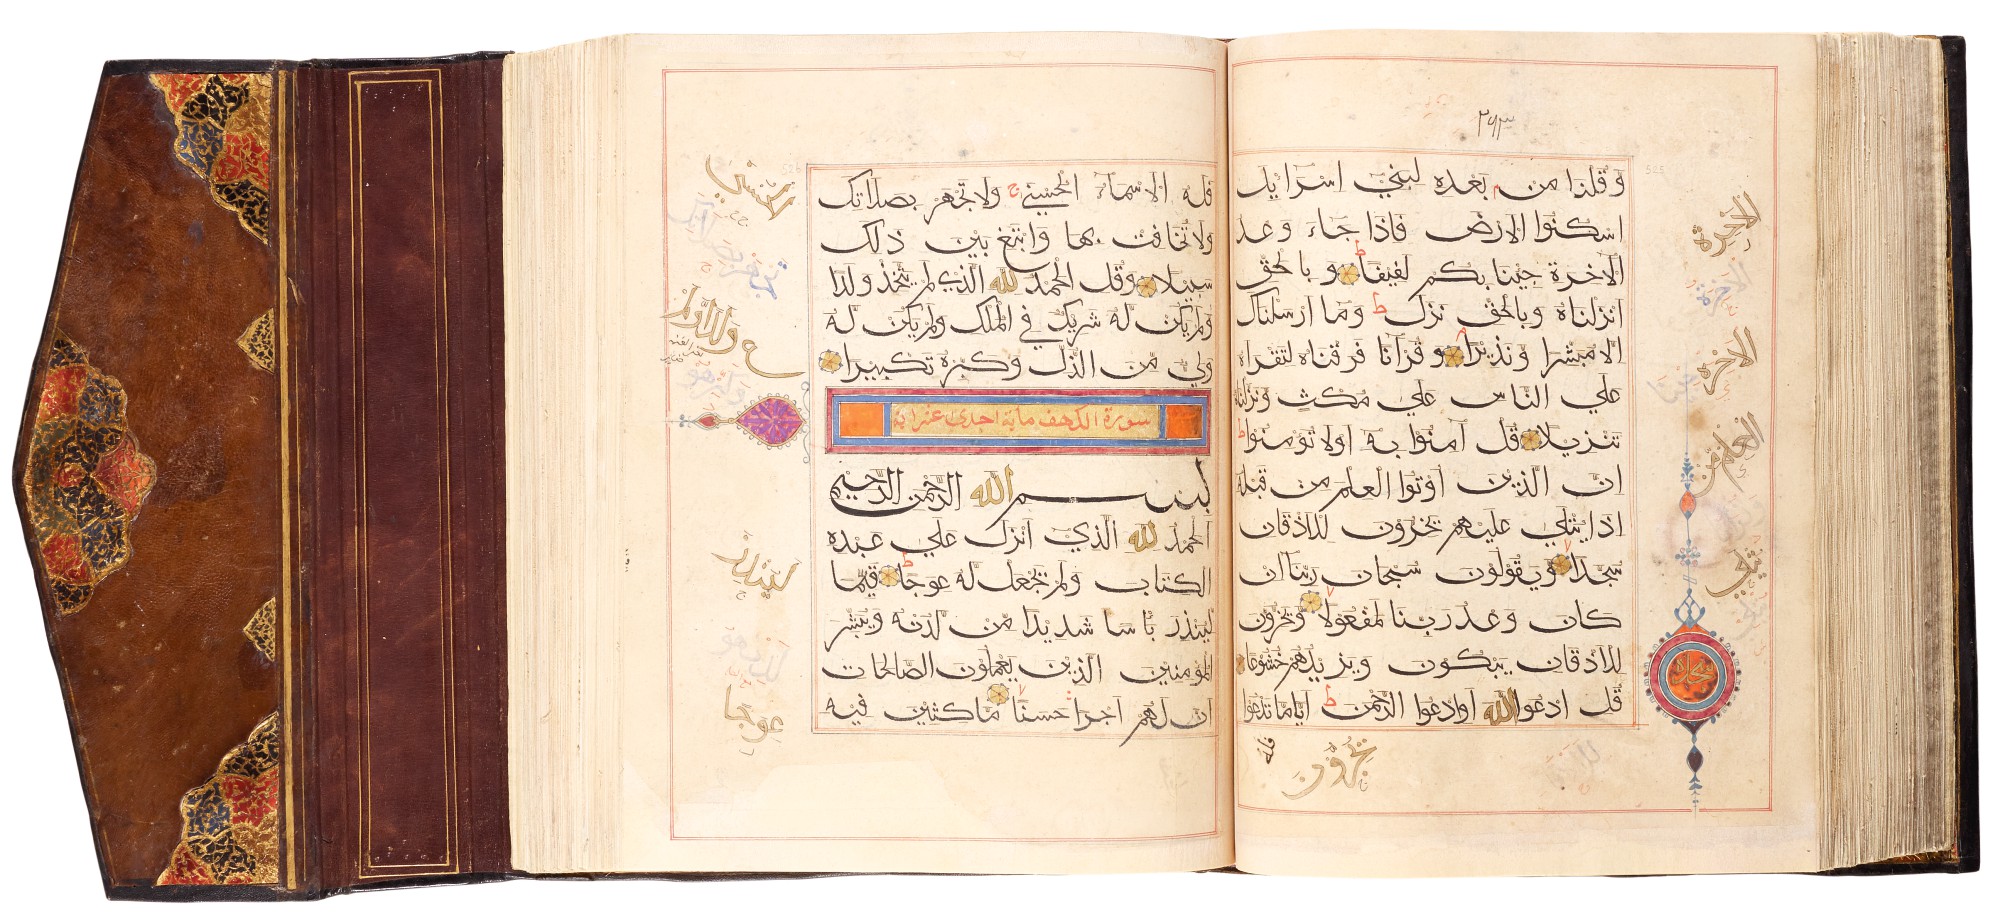 ٢٦٣
وقلنا من بعده لبني اسرايل
اسكنوا الارض فاذا جاء وعد
الاخرة جينا بكم لفيفا وبالحق
انزلناه وبالحق نزل وما ارسلناك
الا مبشرا ونذيرا وقرآنا فرقناه لتقراه
علي الناس علي مكث ونزلناه
تنزيلا قل آمنوا به اولا تومنوا
ان الذين اوتوا العلم من قبله
اذا يتلي عليهم يخرون للاذقان
سجدا ويقولون سبحان ربنا ان
كان وعد ربنا لمفعولا ويخرون
للاذقان يبكون ويزيدهم خشوعا
قل ادعوا الله اوادعوا الرحمن اياما تدعوا
فله
الاخرة
العلم من
يخرون
سجده
525
فله الاسماء الحسني ولا تجهر بصلاتك
ولا تخافت بها وابتغ بين ذلك
سبيلا وقل الحمد لله الذي لم يتخذ ولدا
ولم يكن له شريك في الملك ولم يكن له
ولي من الذل وكبره تكبيرا
سورة الكهف ماية احدي عشراية
بسم الله الرحمن الرحيم
الحمد لله الذي انزل علي عبده
الكتاب ولم يجعل له عوجا قيما
لينذر باسا شديدا من لدنه ويبشر
المومنين الذين يعملون الصالحات
ان لهم اجرا حسنا ماكثين فيه
لينذر
عوجا